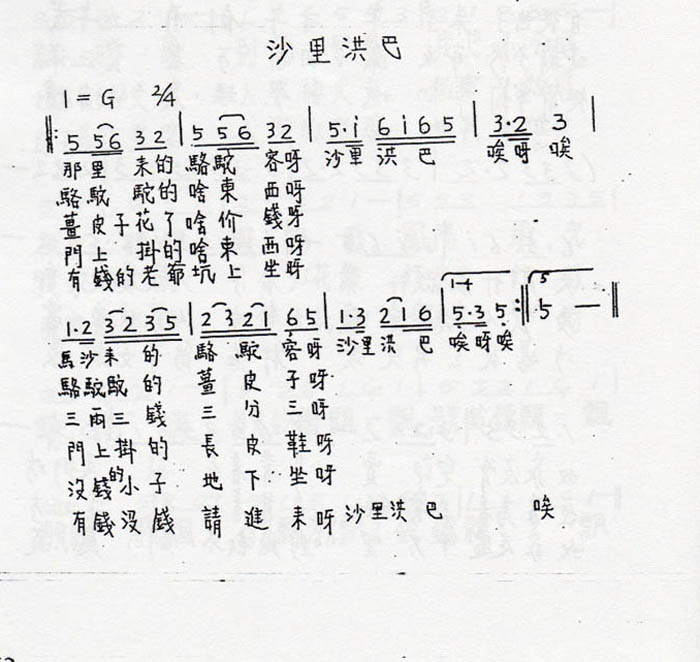 沙里洪巴
1=G 2/4
‖: 5 56 32 | 5 56 32 | 5·i 6i65 | 3·2 3 |
那里来的駱駝客呀 沙里洪巴 唉呀唉
駱駝駝的啥東西呀
薑皮子花了啥价錢呀
門上掛的啥東西呀
有錢的老爺坑上坐呀
1·2 32 35 | 2321 65 | 1·3 216 | 1-4 5·3 5 :‖ 5 5 — ‖
馬沙来的駱駝客呀 沙里洪巴 唉呀唉
駱駝馱的薑皮子呀
三兩三錢三分三呀
門上掛的長皮鞋呀
沒錢的小子地下坐呀
有錢沒錢請進来呀 沙里洪巴 唉